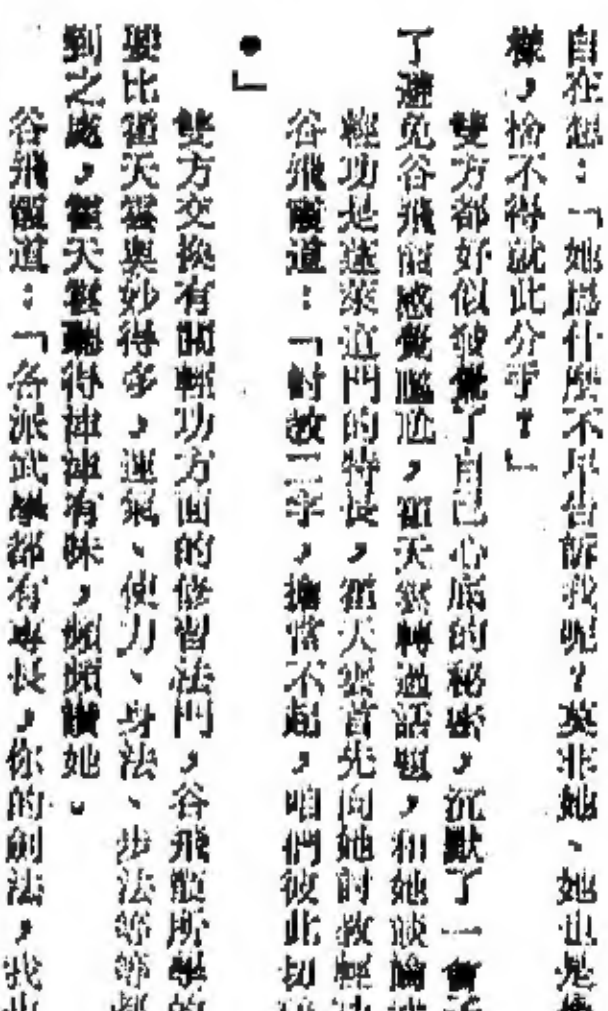 自在想：「她爲什麽不早告訴我呢？莫非她、她也是像
樣，捨不得就此分手？」
雙方都好似發覺了自己心底的秘密，沉默了一會
了避免谷飛霞感覺尷尬，霍天雲轉過話題，和她談論
輕功是蓬萊道門的特長，霍天雲首先向她討教輕功
谷飛霞道：「討教二字，擔當不起，咱們彼此切
。」
雙方交換有關輕功方面的修習法門，谷飛霞所學的
要比霍天雲奧妙得多，運氣、使力、身法、步法等等都
到之處，霍天雲聽得津津有味，頻頻讚她。
谷飛霞道：「各派武學都有專長，你的劍法，我也